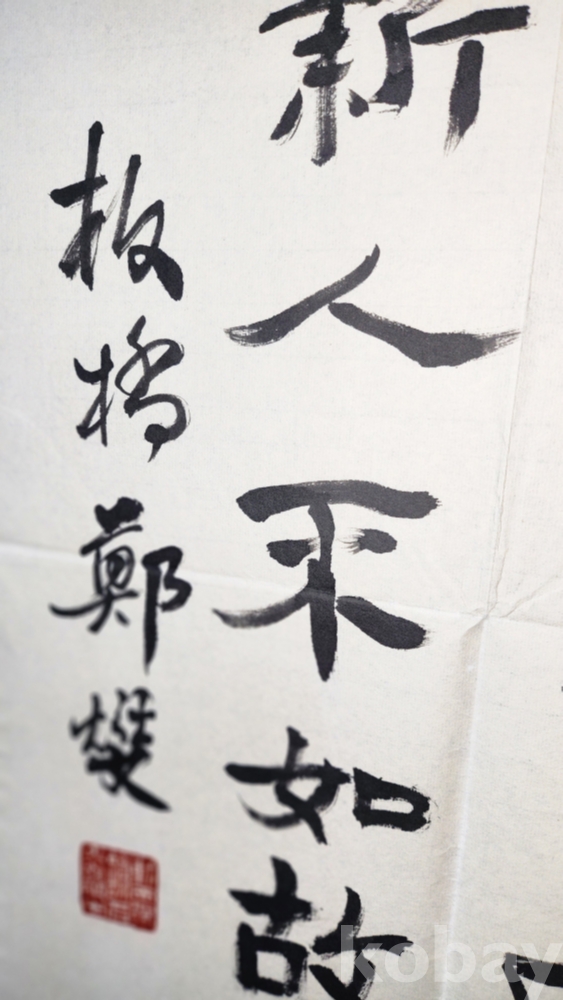 新人如故
板橋鄭燮
kobay